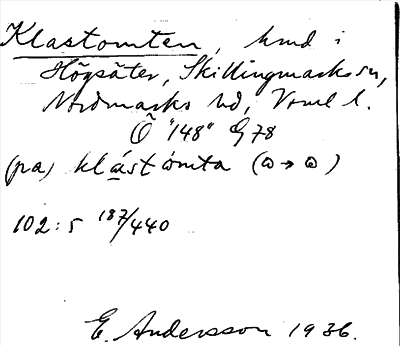 Klastomten, hmd i
Högsäter, Skillingmarks sn,
Nordmarks hd, Vrml l.
Ö "148" G78
(pa) klåstòmta (ɷ → ɷ)
102:5 187/440
E. Andersson 1936.